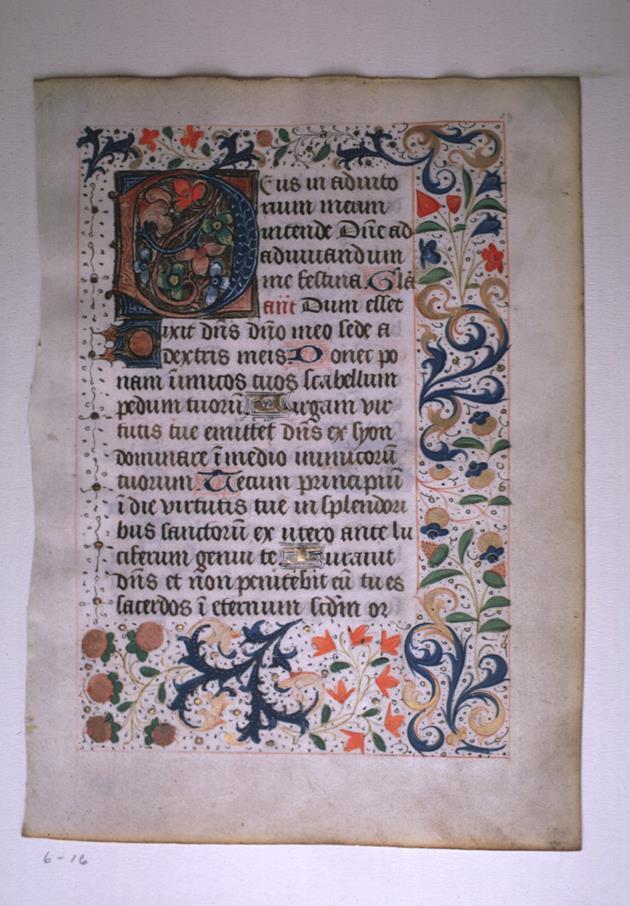 Deus in adiuto
rium meum
intende Dn̄e ad
adiuuandum
me festina. Glā
ant̄ Dum esset
Dixit dn̄s dn̄o meo sede a
dextris meis Donec po
nam īimicos tuos scabellum
pedum tuorū Virgam vir
tutis tue emittet dn̄s ex syon
dominare ī medio inimicorū
tuorum Tecum principiū
ī die virtutis tue in splendori
bus sanctorū ex utero ante lu
ciferum genui te Iurauit
dn̄s et non penitebit eū tu es
sacerdos ī eternum scd̄m or
6-16